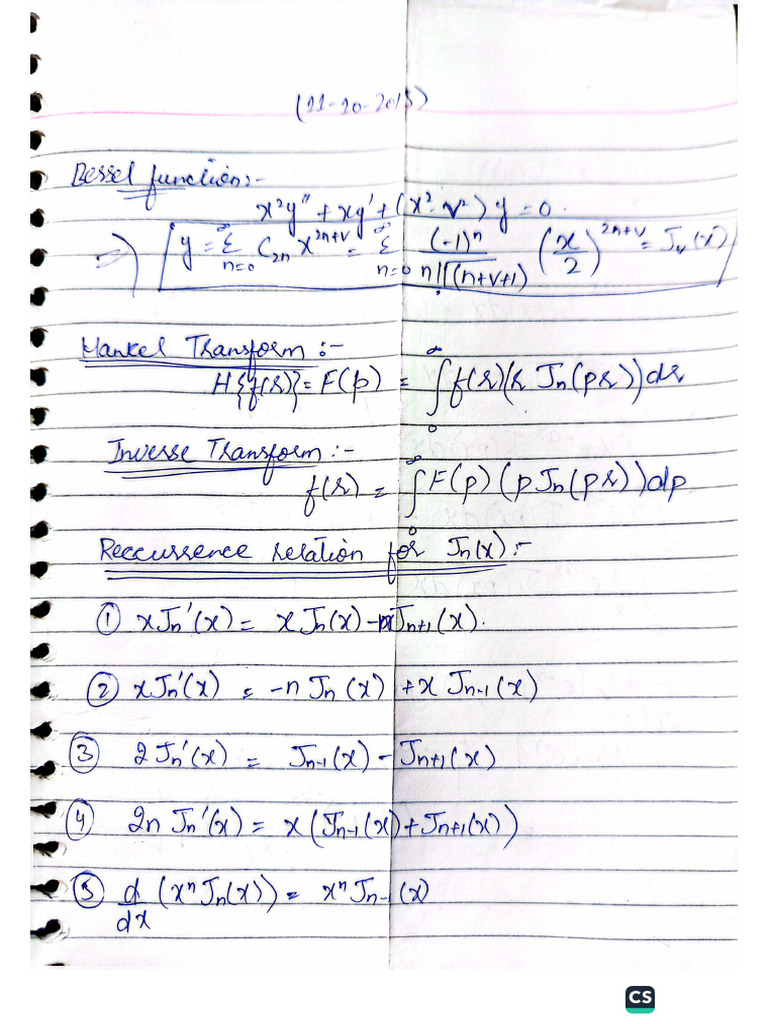 (11-10-2015)
Bessel function:-
x²y'' + xy' + (x² - ν²) y = 0.
=> y = ∞Σn=0 C₂ₙ x²ⁿ⁺ᵛ = ∞Σn=0 (-1)ⁿ / n! Γ(n+ν+1) (x/2)²ⁿ⁺ᵛ = Jᵥ(x)
Hankel Transform :-
H{f(r)} = F(p) = ∫₀^∞ f(r)(r Jₙ(pr))dr
Inverse Transform :-
f(r) = ∫₀^∞ F(p) (p Jₙ(pr))dp
Reccurssence relation for Jₙ(x) :-
① xJₙ'(x) = x Jₙ(x) - xJₙ₊₁(x).
② xJₙ'(x) = -n Jₙ(x) + x Jₙ₋₁(x)
③ 2Jₙ'(x) = Jₙ₋₁(x) - Jₙ₊₁(x)
④ 2n Jₙ'(x) = x(Jₙ₋₁(x) + Jₙ₊₁(x))
⑤ d/dx (xⁿJₙ(x)) = xⁿJₙ₋₁(x)
CS